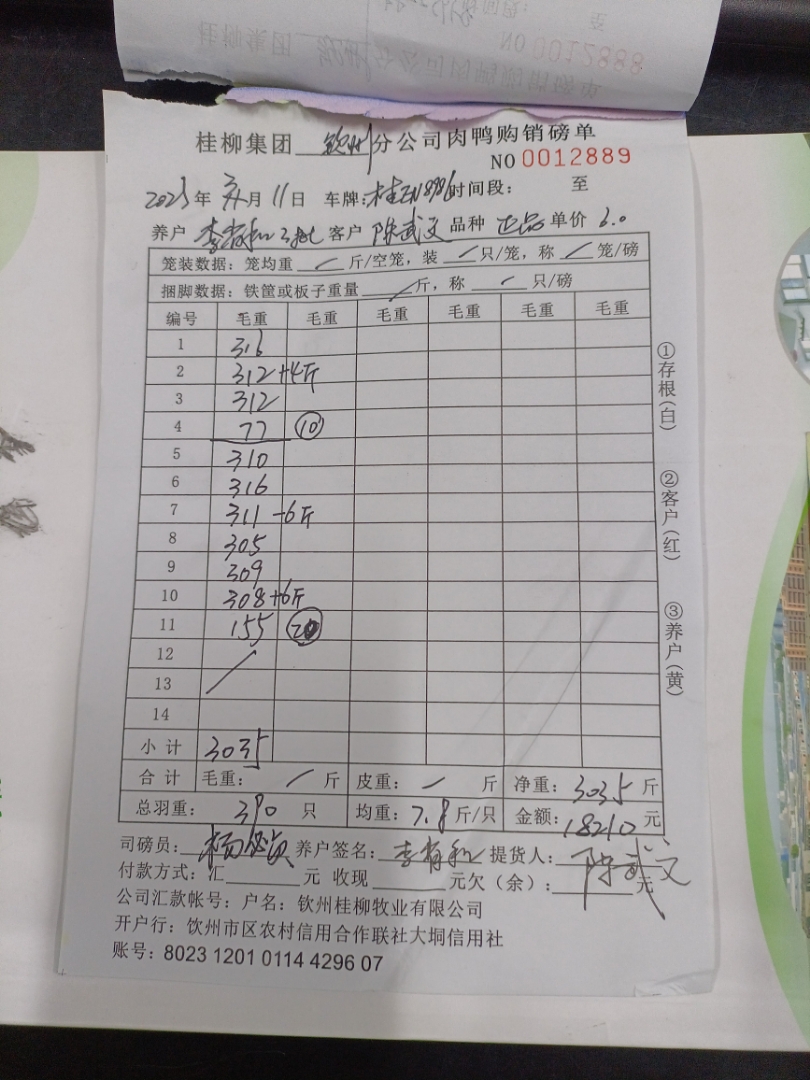 NO 0012888
桂柳集团 钦州 分公司肉鸭购销磅单
NO 0012889
2023年 月11日 车牌: 时间段: 至
养户 李有和 客户 陈武文 品种 正品 单价 6.0
笼装数据: 笼均重 / 斤/空笼, 装 / 只/笼, 称 / 笼/磅
捆脚数据: 铁筐或板子重量 / 斤, 称 / 只/磅
编号 毛重 毛重 毛重 毛重 毛重 毛重
1 316
2 312 +4斤
3 312
4 77 ⑩
5 310
6 316
7 311 -6斤
8 305
9 309
10 308 +6斤
11 155 ⑳
12
13
14
小计 3035
合计 毛重: / 斤 皮重: / 斤 净重: 3035 斤
总羽重: 390 只 均重: 7.8 斤/只 金额: 18210 元
司磅员: 养户签名: 李有和 提货人: 陈武文
付款方式: 汇 元 收现 元欠(余): 元
公司汇款帐号: 户名: 钦州桂柳牧业有限公司
开户行: 钦州市区农村信用合作联社大垌信用社
账号: 8023 1201 0114 4296 07
①存根(白)
②客户(红)
③养户(黄)